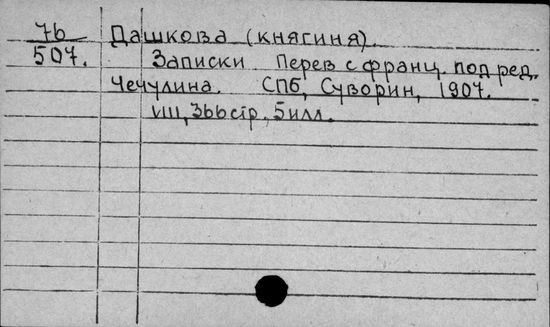 76 Дашкова (княгиня).
507. Записки Перев с франц. под ред.
Чечулина. СПб, Суворин, 1907.
VIII, 366 стр., 5 илл.